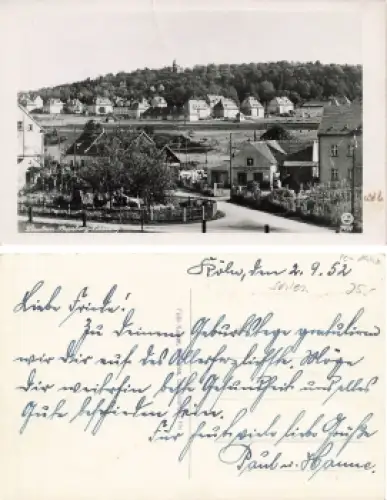 Köln, den 2.9.52
Liebe Friede!
Zu Deinem Geburtstage gratulieren
wir Dir auf das Allerherzlichste. Möge
Dir weiterhin beste Gesundheit und alles
Gute beschieden sein.
Für heute viele liebe Grüße
Paul u. Hanne.